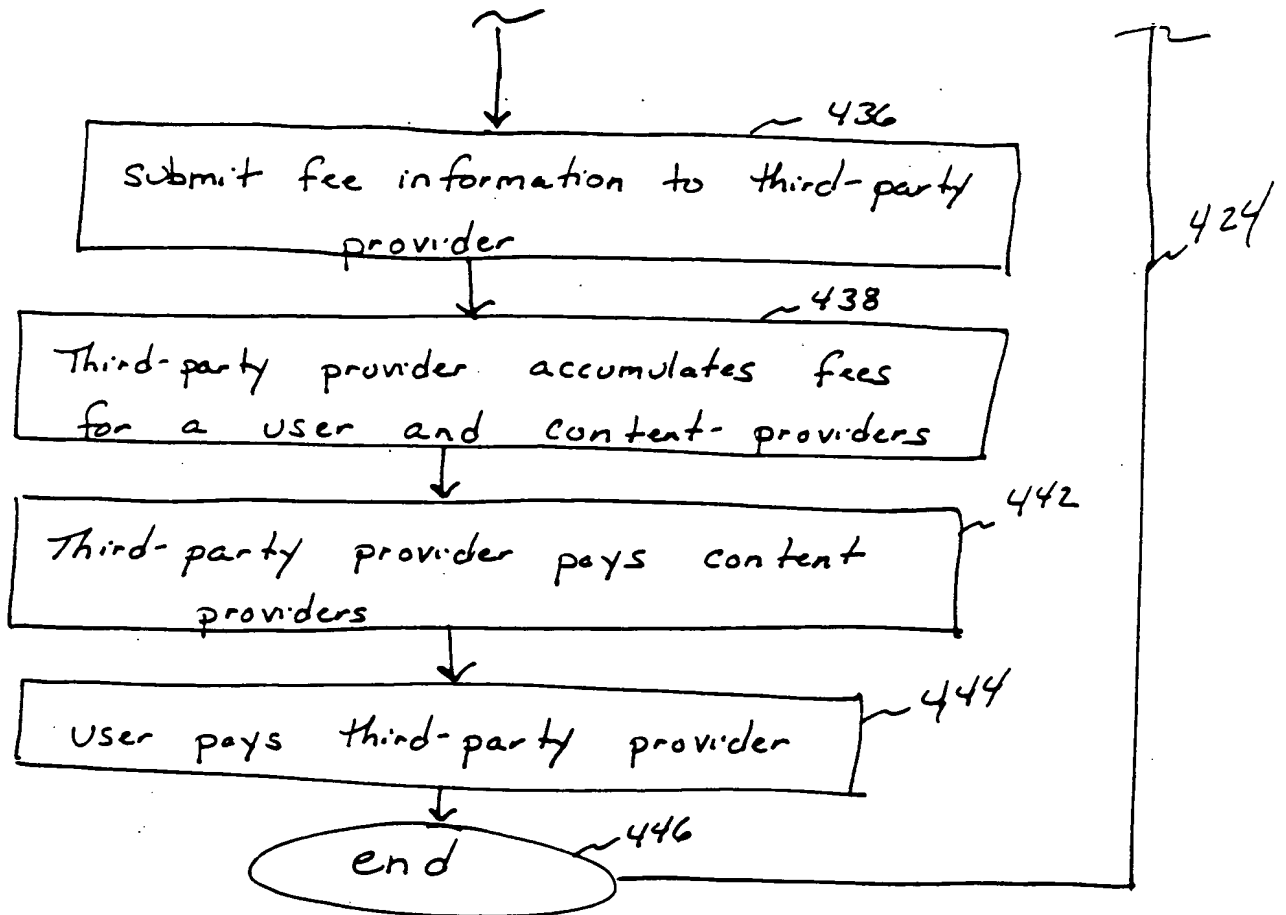 436
submit fee information to third-party
provider
424
438
Third-party provider accumulates fees
for a user and content-providers
442
Third-party provider pays content
providers
444
user pays third-party provider
446
end